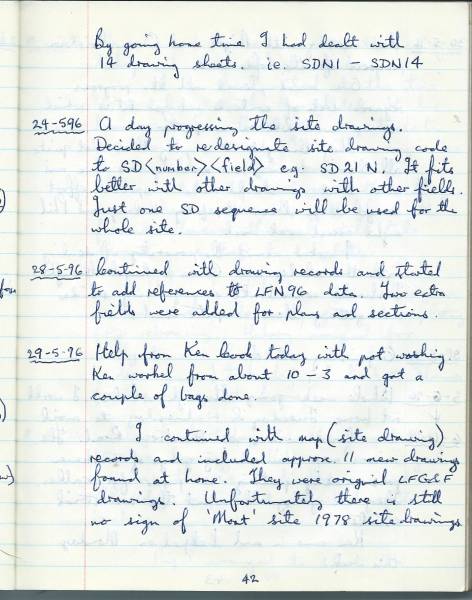 By going home time I had dealt with
14 drawing sheets. ie. SDN1 - SDN14
24-596 A day progressing the site drawings.
Decided to redesignate site drawing code
to SD<number><field> e.g. SD21N. It fits
better with other drawings with other fields.
Just one SD sequence will be used for the
whole site.
28-5-96 Continued with drawing records and started
to add references to LFN96 data. Two extra
fields were added for plans and sections.
29-5-96 Help from Ken Cook today with pot washing.
Ken worked from about 10-3 and got a
couple of bags done.
I continued with map (site drawing)
records and included approx. 11 new drawings
found at home. They were original LFG&F
drawings. Unfortunately there is still
no sign of 'Moat' site 1978 site drawings
42